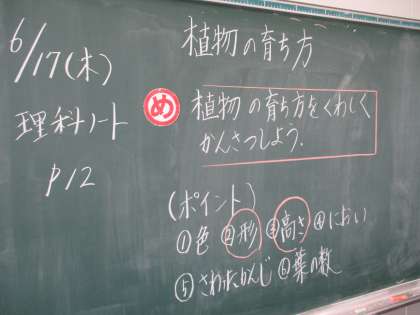 6/17(木)
理科ノート
P12
植物の育ち方
め
植物の育ち方をくわしく
かんさつしよう.
(ポイント)
①色 ②形 ③高さ ④におい
⑤さわったかんじ ⑥葉の数